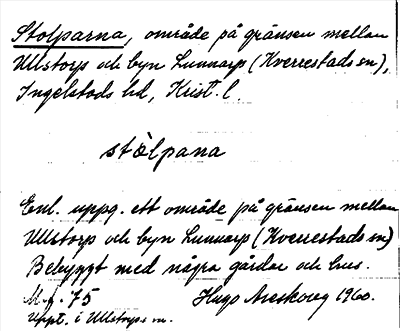 Stolparna, område på gränsen mellan
Ullstorp och byn Lunnarp (Kverrestads sn),
Ingelstads hd, Krist. l.
stòlpana
Enl. uppg. ett område på gränsen mellan
Ullstorp och byn Lunnarp (Kverrestads sn)
Bebyggt med några gårdar och hus.
M. f. 75 Hugo Areskoug 1960.
Uppt. i Ullstorps sn.